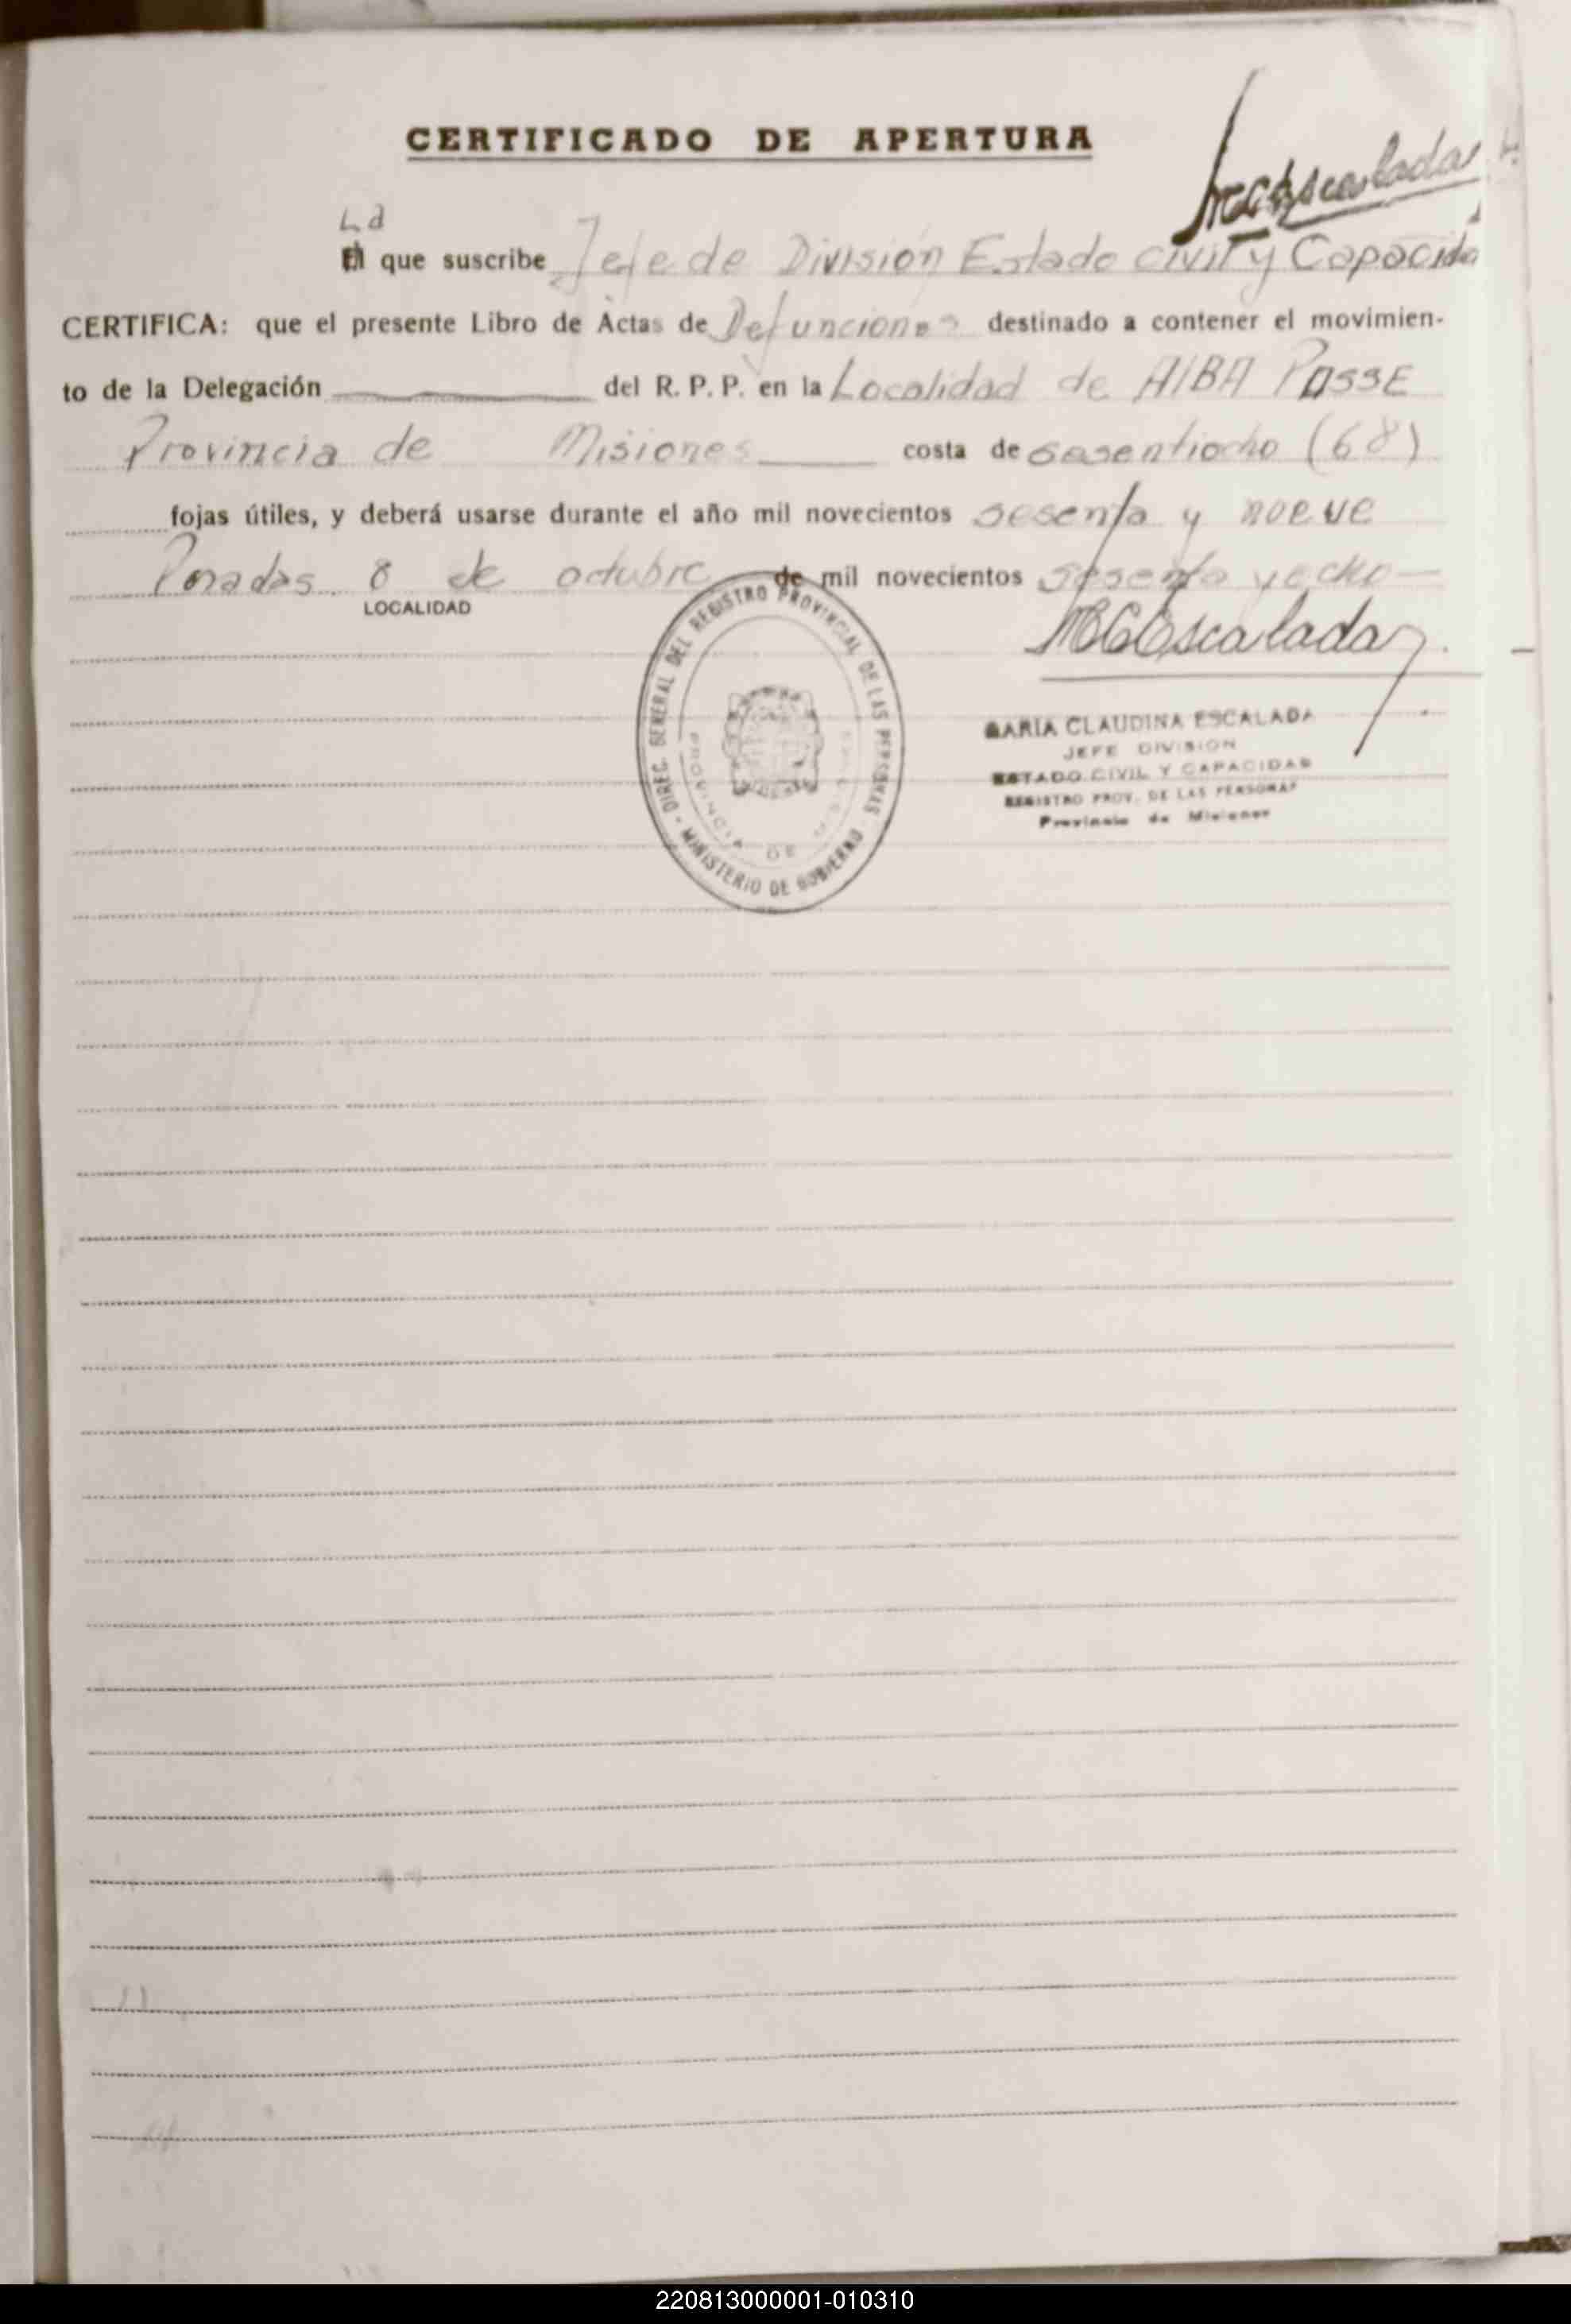 CERTIFICADO DE APERTURA
MCEscalada
La
El que suscribe Jefe de División Estado civil y Capacida
d
CERTIFICA: que el presente Libro de Actas de Defunciones destinado a contener el movimien-
to de la Delegación del R. P. P. en la Localidad de AlBA POSSE
Provincia de Misiones costa de sesentiocho (68)
fojas útiles, y deberá usarse durante el año mil novecientos sesenta y nueve
Posadas 8 de octubre de mil novecientos sesenta y ocho
LOCALIDAD
MCEscalada
DIREC. GENERAL DEL REGISTRO PROVINCIAL DE LAS PERSONAS - MINISTERIO DE GOBIERNO -
PROVINCIA DE
MARIA CLAUDINA ESCALADA
JEFE DIVISION
ESTADO CIVIL Y CAPACIDAD
REGISTRO PROV. DE LAS PERSONAS
Provincia de Misiones
220813000001-010310